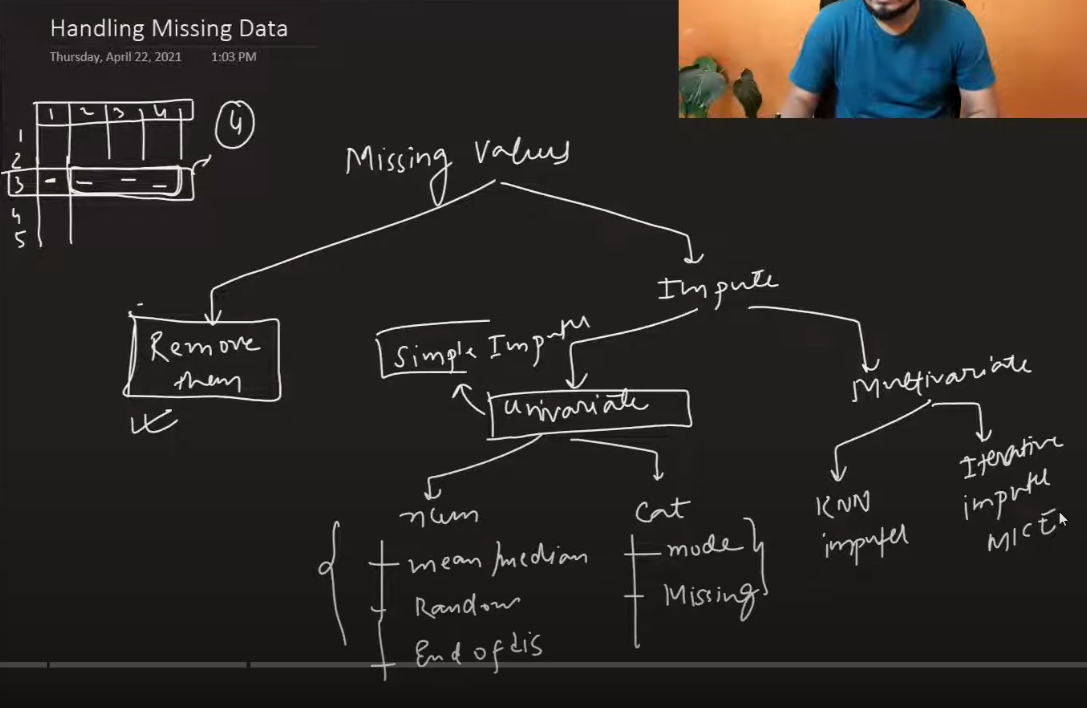 Handling Missing Data
Thursday, April 22, 2021 1:03 PM
1 2 3 4
1
2
3 - - - -
4
5
4
Missing Values
Impute
Remove
them
Simple Imputer
Univariate
Multivariate
Num
mean/median
Random
End of dis
Cat
mode
Missing
KNN
imputer
Iterative
imputer
MICE